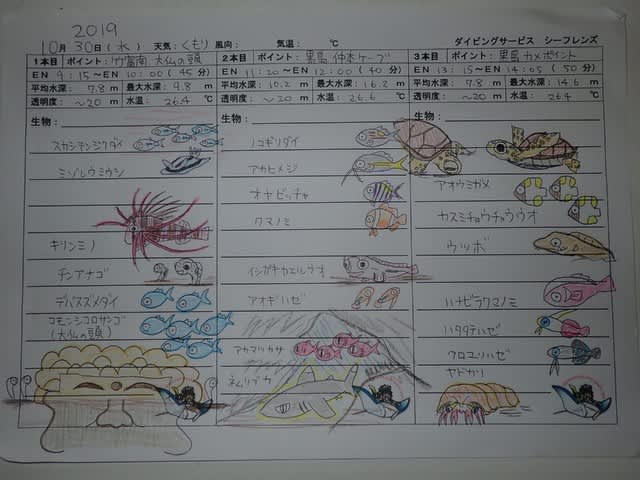 2019
10月30日(水) 天気:くもり 風向: 気温: ℃ ダイビングサービス シーフレンズ
1本目 ポイント:竹富南 大仏の頭
EN 9:15~EN 10:00 (45分)
平均水深:7.8m 最大水深:9.8m
透明度:~20m 水温:26.4℃
生物:
スカシテンジクダイ
ミゾレウミウシ
キリンミノ
チンアナゴ
デバスズメダイ
コモンシコロサンゴ
(大仏の頭)
2本目 ポイント:黒島 仲本ケーブ
EN 11:20~EN 12:00 (40分)
平均水深:10.2m 最大水深:16.2m
透明度:~20m 水温:26.6℃
生物:
ノコギリダイ
アカヒメジ
オヤビッチャ
クマノミ
イシガキカエルウオ
アオギハゼ
アカマツカサ
ネムリブカ
3本目 ポイント:黒島 カメポイント
EN 13:15~EN 14:05 (50分)
平均水深:7.8m 最大水深:14.6m
透明度:~20m 水温:26.4℃
生物:
アオウミガメ
カスミチョウチョウウオ
ウツボ
ハナビラクマノミ
ハタタテハゼ
クロユリハゼ
ヤドカリ